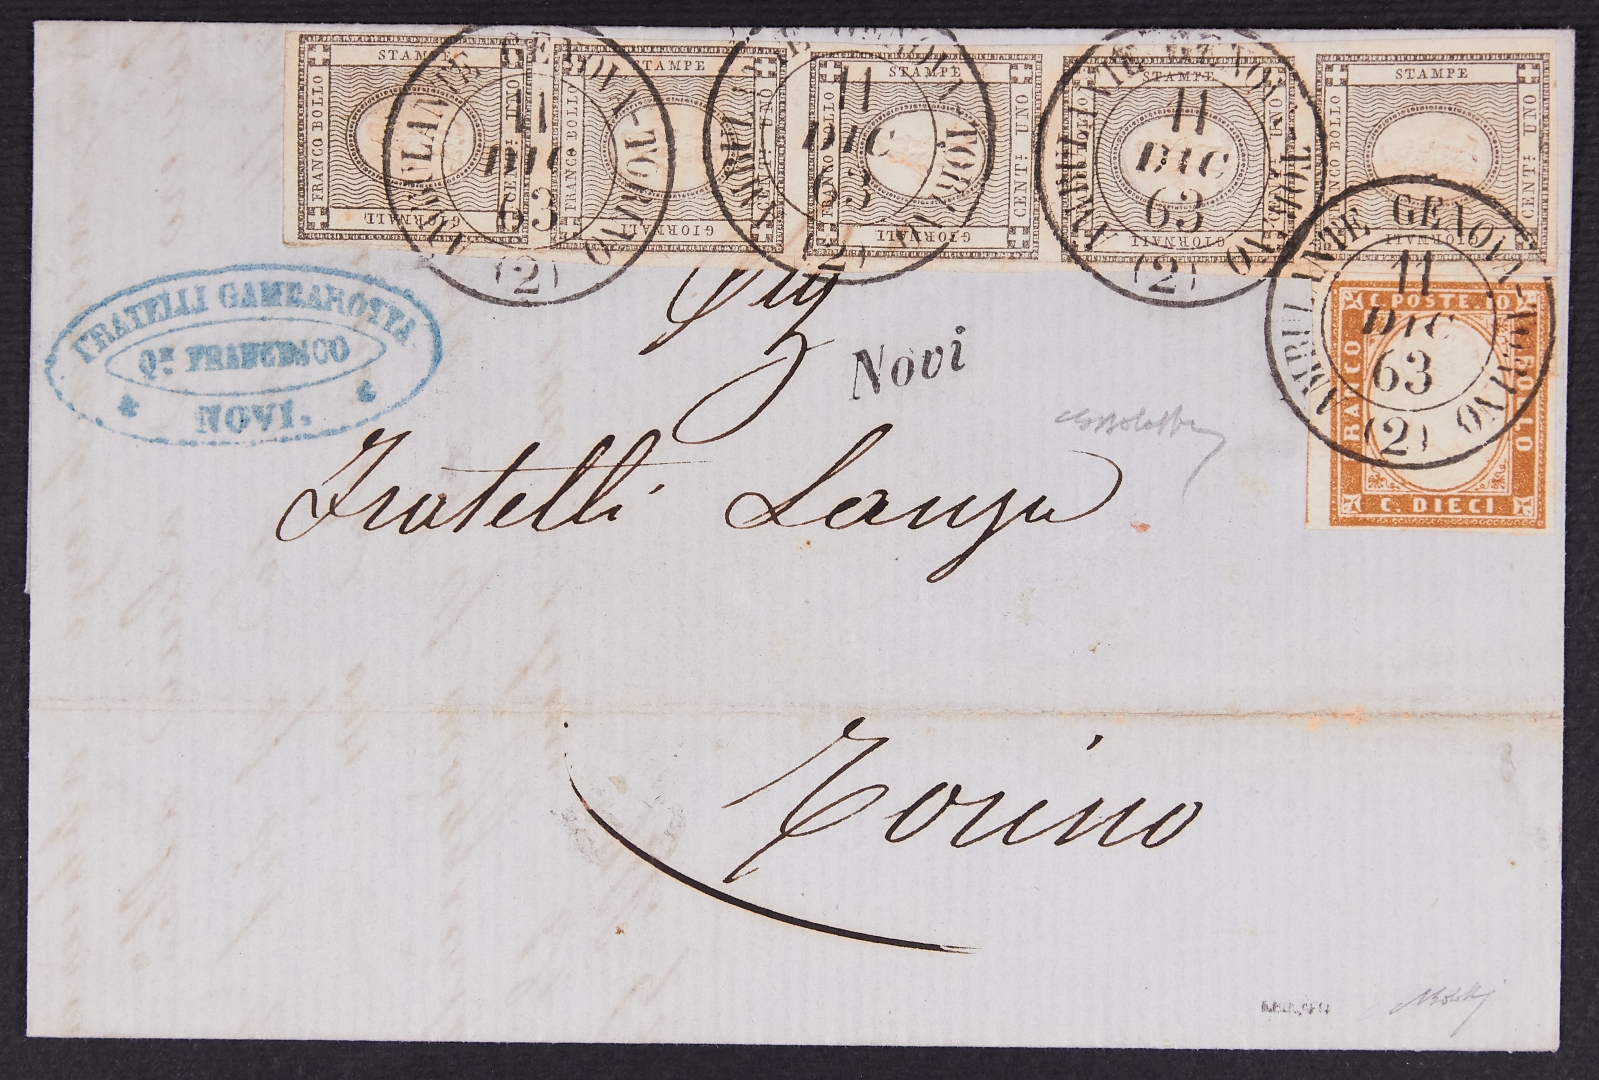 STAMPE
FRANCO BOLLO
CENT: UNO
GIORNALI
STAMPE
FRANCO BOLLO
GIORNALI
STAMPE
FRANCO BOLLO
CENT: UNO
GIORNALI
STAMPE
UNO
GIORNALI
STAMPE
FRANCO BOLLO
CENT: UNO
GIORNALI
AMBULANTE GENOVA-TORINO
11
DIC
63
(2)
AMBULANTE GENOVA-TORINO
11
DIC
63
(2)
AMBULANTE GENOVA-TORINO
11
DIC
63
(2)
AMBULANTE GENOVA-TORINO
11
DIC
63
(2)
C. POSTE 10
FRANCO
BOLLO
C. DIECI
FRATELLI GAMBAROTTA
Qm. FRANCESCO
NOVI.
Novi
Fratelli Lanza
Torino